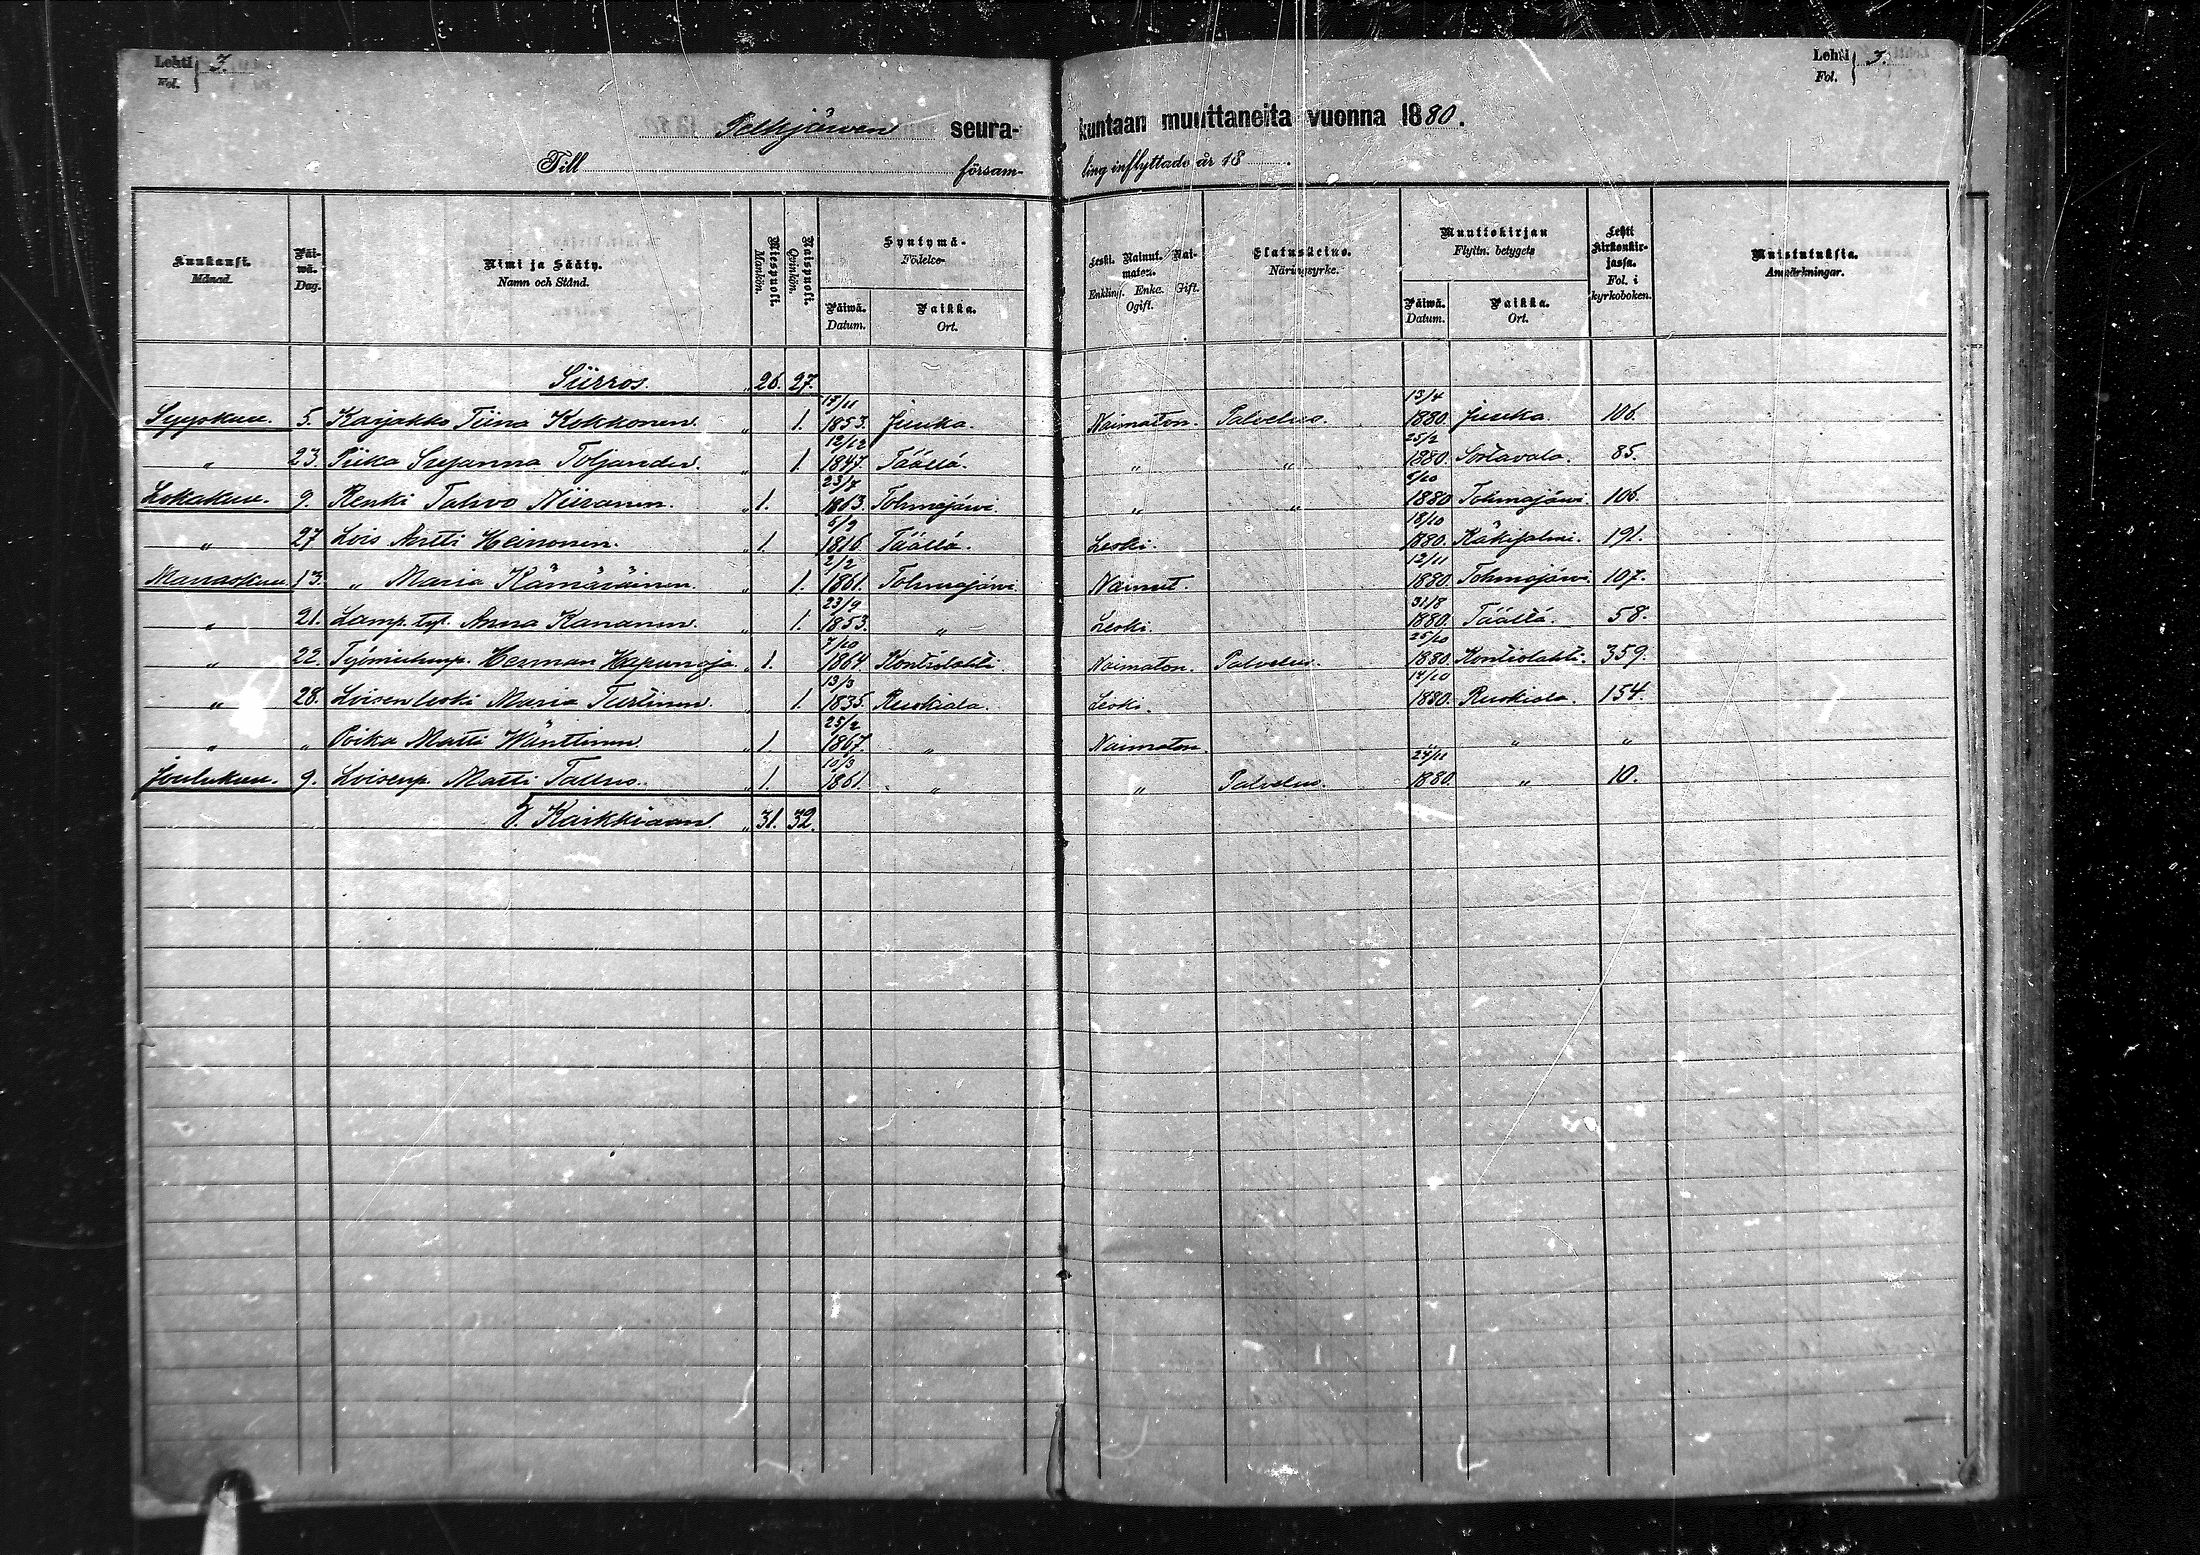 Lehti } 3.
Fol.
Lehti } 3.
Fol.
Pelkjärven seura- kuntaan muuttaneita vuonna 1880.
Till försam- ling inflyttade år 18 .
Kuukausi. Månad. Päi- wä. Dag. Nimi ja Sääty. Namn och Stånd. Miespuoli. Mankön. Naispuoli. Qvinkön. Syntymä- Födelse- Päiwä. Datum. Paikka. Ort. Leski. Nainut. Nai- maton. Enkling. Enka. Gift. Ogift. Elatuskeino. Näringsyrke. Muuttokirjan Flyttn. betygets Päiwä. Datum. Paikka. Ort. Lehti Kirkonkir- jassa. Fol. i kyrkoboken. Muistutuksia. Anmärkningar.
Siirros. „ 26. 27.
Syyskuu. 5. Karjakko Tiina Kokkonen. „ 1. 17/11 1853. Juuka. Naimaton. Palvelus. 13/4 1880. Juuka. 106.
„ 23. Piika Susanna Toljander. „ 1. 12/12 1847. Täällä. „ „ 25/2 1880. Sortavala. 85.
Lokakuu. 9. Renki Tahvo Niiranen. „ 1. 23/7 1863. Tohmajärvi. „ „ 1880 Tohmajärvi. 106.
„ 27 Lois Antti Heinonen. „ 1. 5/9 1816 Täällä. Leski. 18/10 1880. Käkisalmi. 191.
Marraskuu 13. „ Maria Kämäräinen. „ 1. 2/2 1861. Tohmajärvi. Nainut. 12/11 1880. Tohmajärvi. 107.
„ 21. Lamp. tyt. Anna Kananen. „ 1. 23/9 1853. „ Leski. 31/8 1880. Täällä. 58.
„ 22. Työmiehenp. Herman Hapunoja „ 1. 7/10 1864. Kontiolahti. Naimaton. Palvelus. 25/10 1880. Kontiolahti. 359.
„ 28. Loisen leski Maria Turtinen. „ 1. 13/3 1835. Ruskiala. Leski. 14/10 1880. Ruskiala. 154.
„ „ Poika Matti Wänttinen. „ 1. 25/2 1867. „ Naimaton. „ „ „
Joulukuu. 9. Loisenp. Matti Tallus. „ 1. 10/3 1861. „ „ Palvelus. 24/11 1880. „ 10.
Kaikkiaan. „ 31. 32.